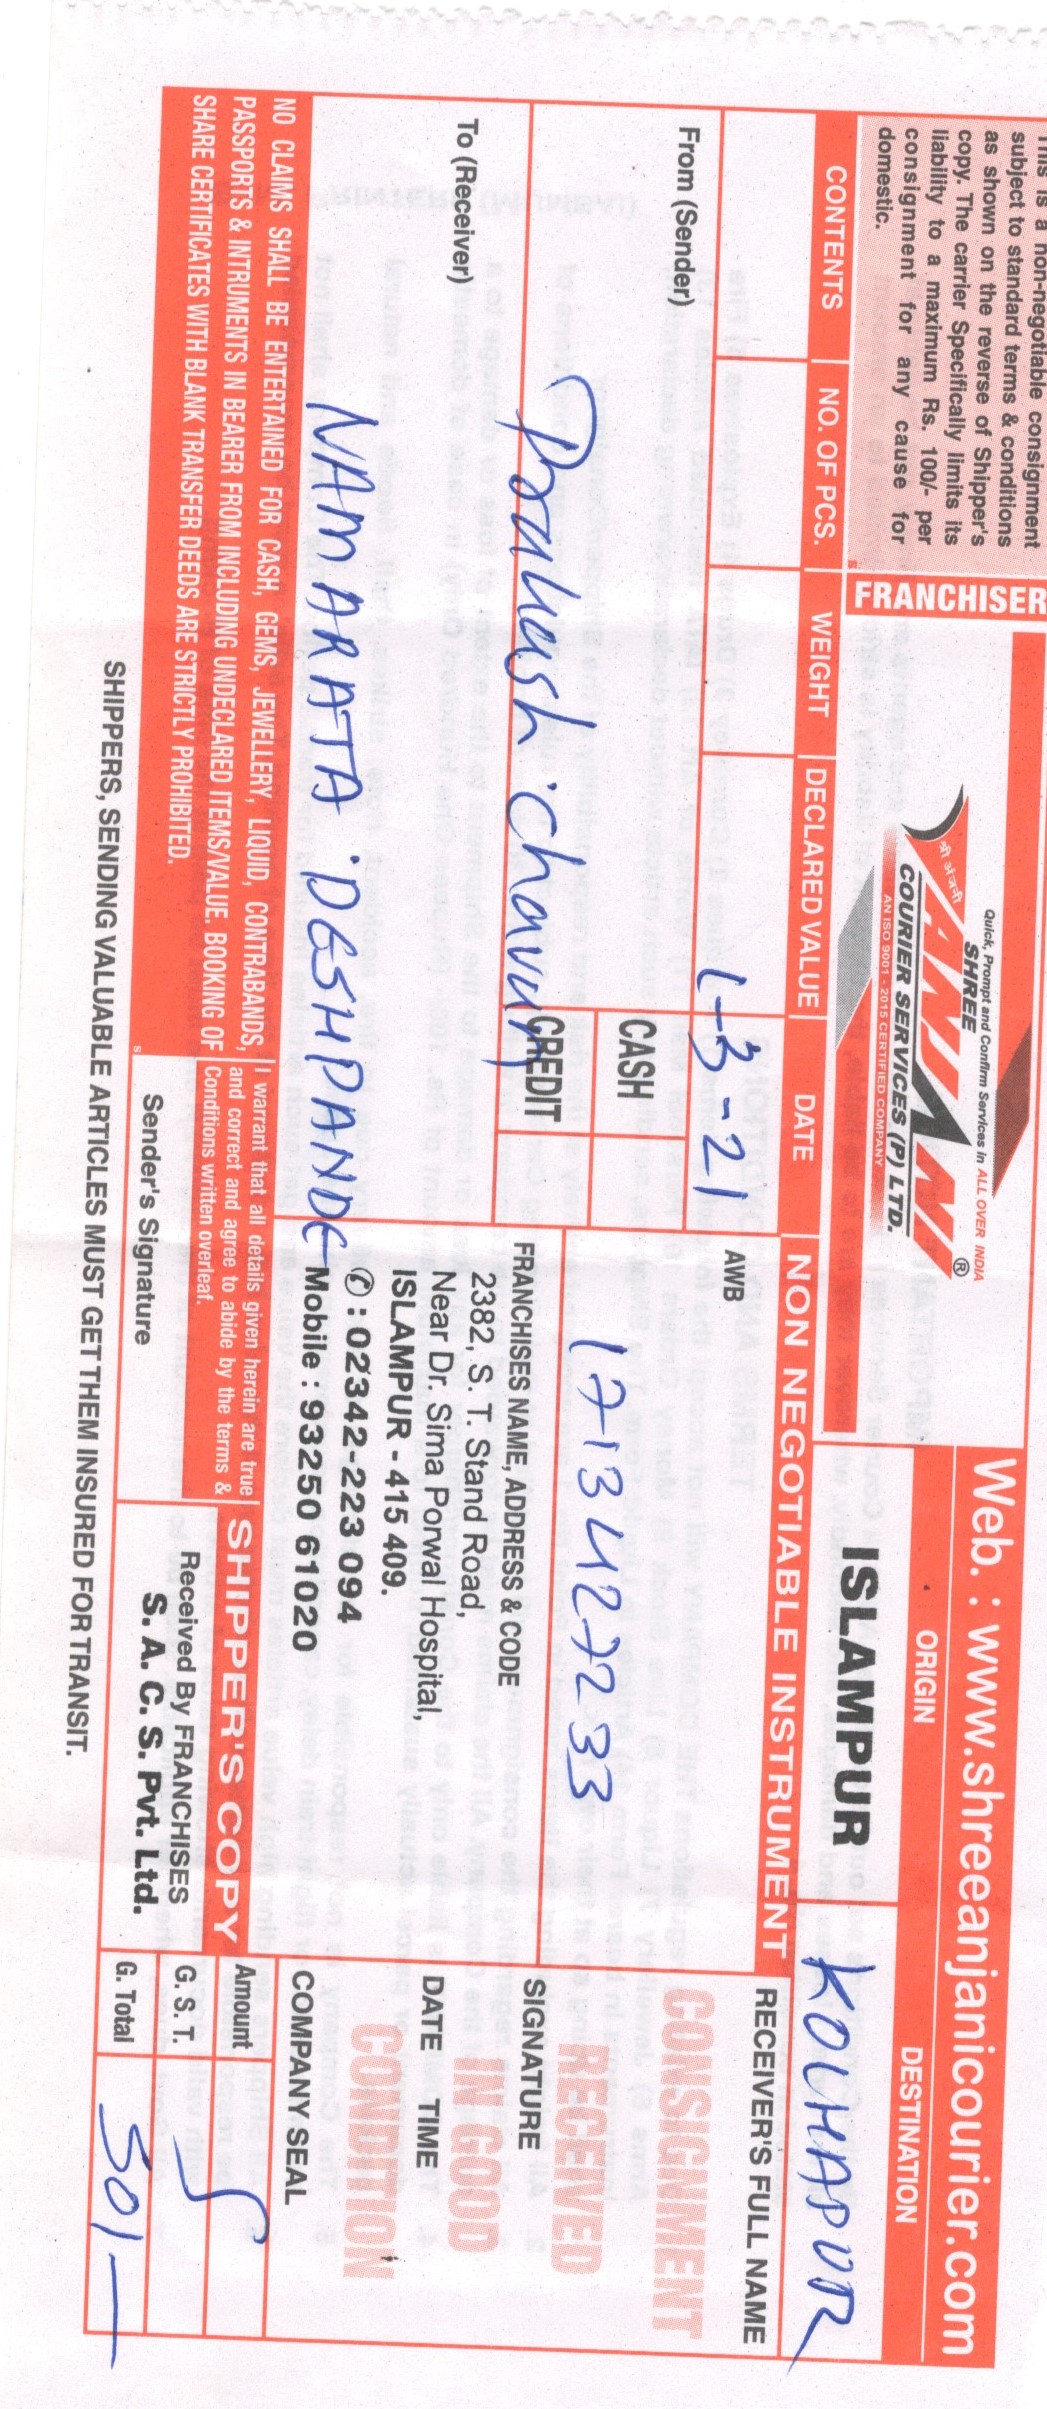 This is a non-negotiable consignment
subject to standard terms & conditions
as shown on the reverse of Shipper's
copy. The carrier Specifically limits its
liability to a maximum Rs. 100/- per
consignment for any cause for
domestic.
FRANCHISER
Quick, Prompt and Confirm Services in ALL OVER INDIA
SHREE
श्री अंजनी
ANJANI ®
COURIER SERVICES (P) LTD.
AN ISO 9001 - 2015 CERTIFIED COMPANY
Web. : www.shreeanjanicourier.com
ORIGIN DESTINATION
ISLAMPUR KOLHAPUR
CONTENTS NO. OF PCS. WEIGHT DECLARED VALUE DATE
1-3-21
NON NEGOTIABLE INSTRUMENT
AWB
1713427233
From (Sender)
Prakash chavan
CASH
CREDIT
To (Receiver)
NAMARATA DESHPANDE
FRANCHISES NAME, ADDRESS & CODE
2382, S. T. Stand Road,
Near Dr. Sima Porwal Hospital,
ISLAMPUR - 415 409.
✆ : 02342-223 094
Mobile : 93250 61020
RECEIVER'S FULL NAME
CONSIGNMENT
RECEIVED
SIGNATURE
IN GOOD
DATE TIME
CONDITION
COMPANY SEAL
NO CLAIMS SHALL BE ENTERTAINED FOR CASH, GEMS, JEWELLERY, LIQUID, CONTRABANDS,
PASSPORTS & INTRUMENTS IN BEARER FROM INCLUDING UNDECLARED ITEMS/VALUE. BOOKING OF
SHARE CERTIFICATES WITH BLANK TRANSFER DEEDS ARE STRICTLY PROHIBITED.
I warrant that all details given herein are true
and correct and agree to abide by the terms &
Conditions written overleaf.
Sender's Signature
SHIPPER'S COPY
Received By FRANCHISES
S. A. C. S. Pvt. Ltd.
Amount
G. S. T.
G. Total 50/-
SHIPPERS, SENDING VALUABLE ARTICLES MUST GET THEM INSURED FOR TRANSIT.